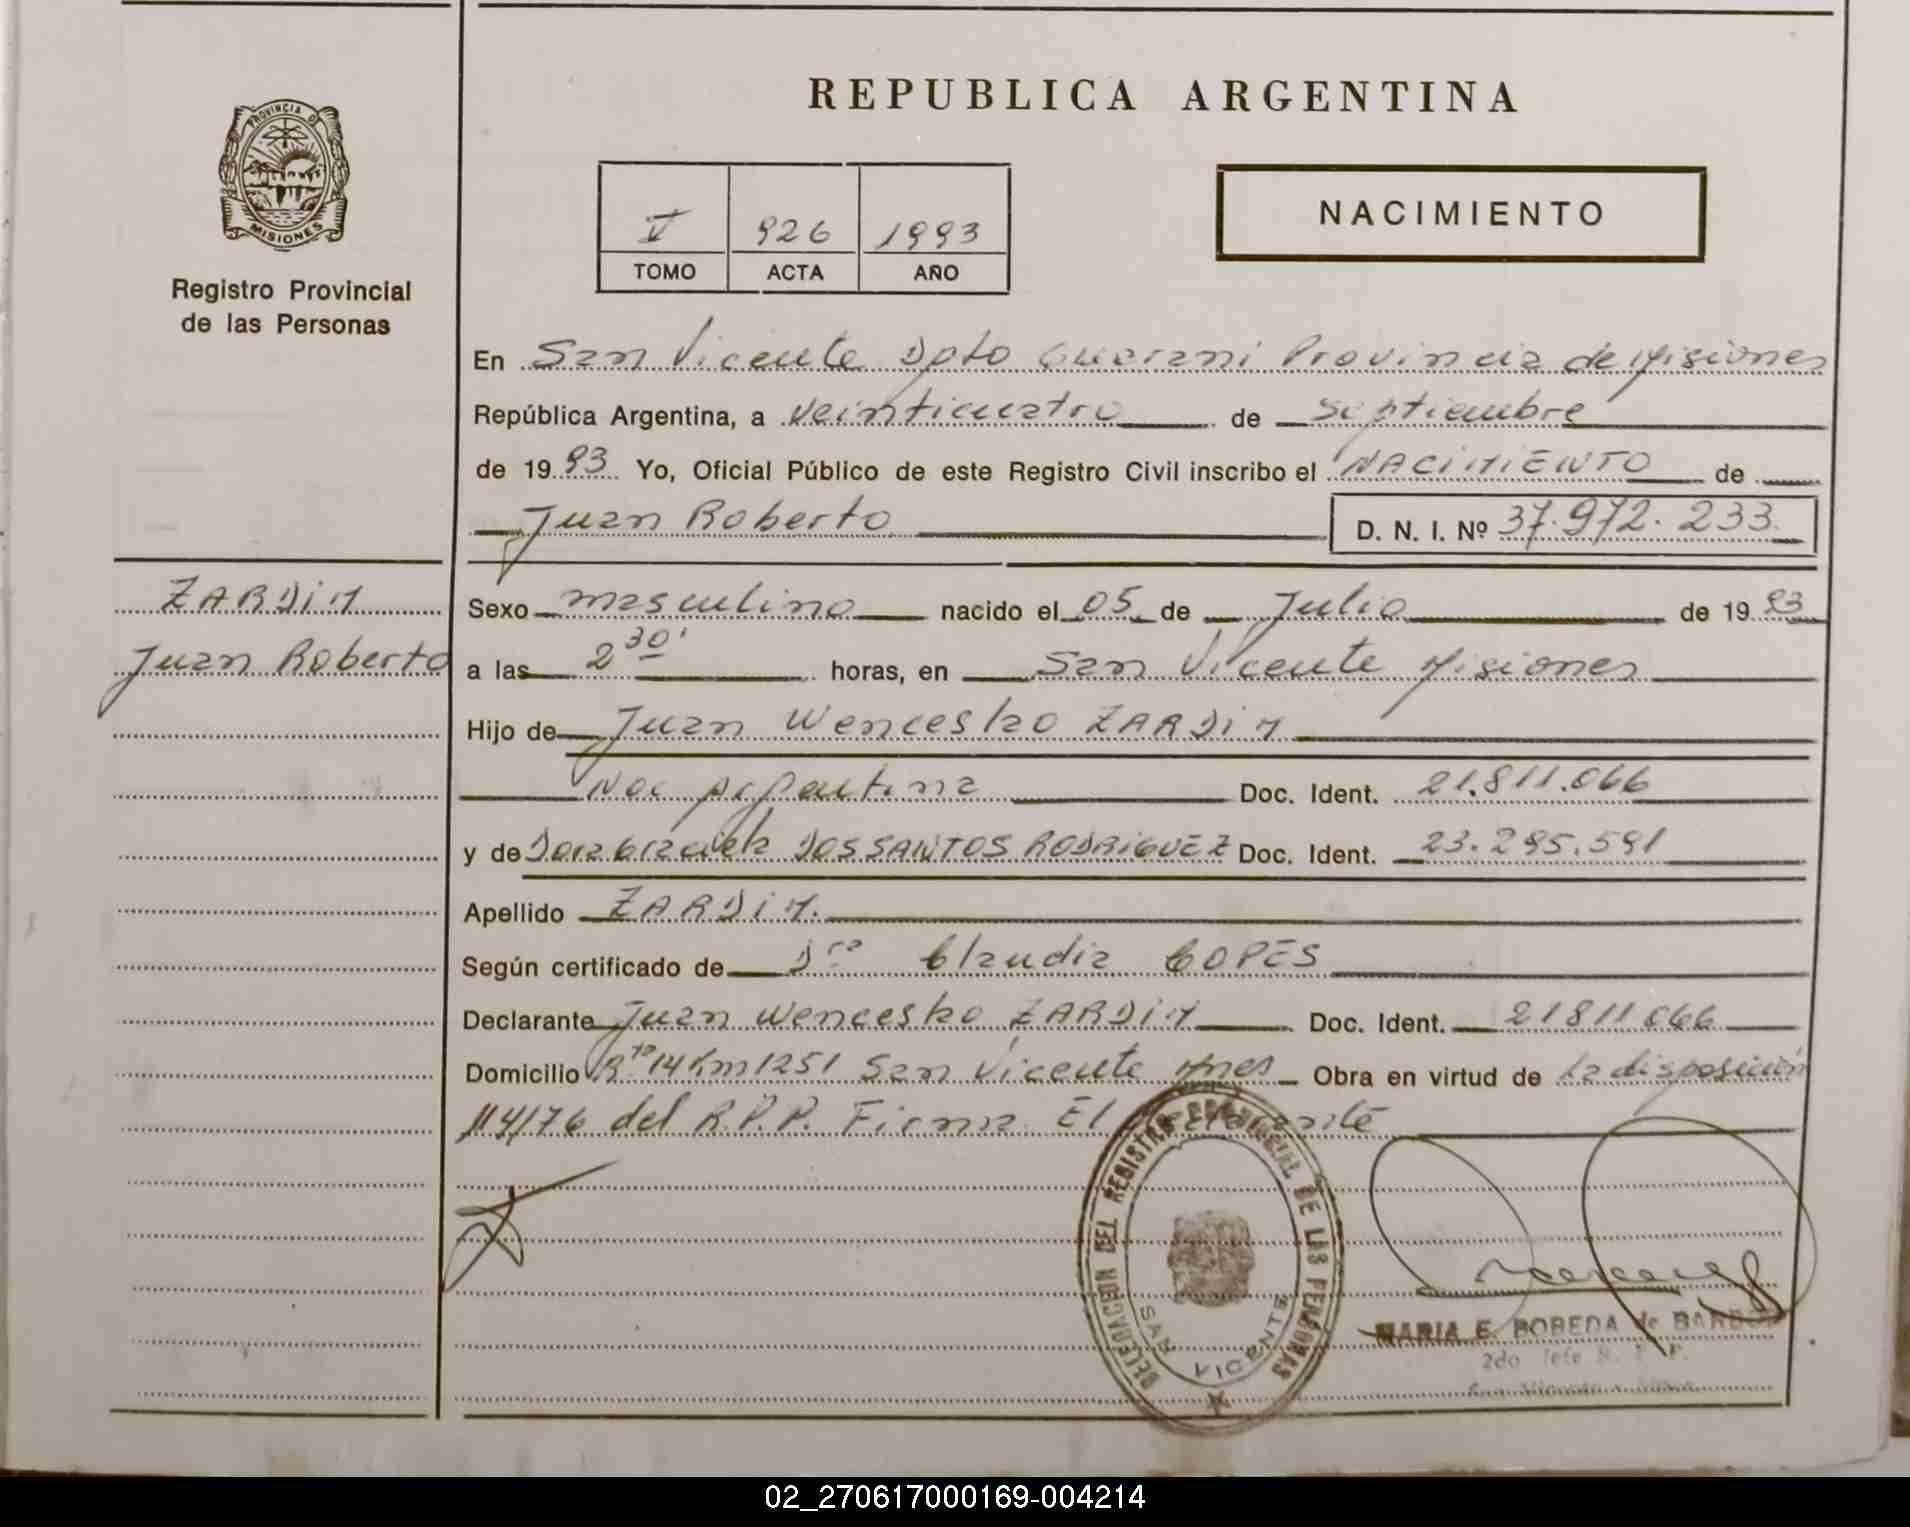 REPUBLICA ARGENTINA
PROVINCIA DE
MISIONES
Registro Provincial
de las Personas
V 926 1993
TOMO ACTA AÑO
NACIMIENTO
En San Vicente Dpto Guarani Provincia de Misiones
República Argentina, a veinticuatro de septiembre
de 1993 Yo, Oficial Público de este Registro Civil inscribo el NACIMIENTO de
Juan Roberto D. N. I. Nº 37.972.233
ZARDIM
Juan Roberto
Sexo masculino nacido el 05 de Julio de 1993
a las 2 30' horas, en San Vicente Misiones
Hijo de Juan Wenceslao ZARDIM
Nac Argentina Doc. Ident. 21.811.066
y de DOS SANTOS RODRIGUEZ Doc. Ident. 23.295.591
Apellido ZARDIM.
Según certificado de Dra Claudia COPES
Declarante Juan Wenceslao ZARDIM Doc. Ident. 21811066
Domicilio Rta 14 Km 1251 San Vicente Mnes Obra en virtud de la disposición
114/76 del R.P.P. Firma El declarante
DELEGACION DEL REGISTRO PROVINCIAL DE LAS PERSONAS
SAN VICENTE
MARIA E. BOBEDA de
2do Jefe R. P. P.
02_270617000169-004214